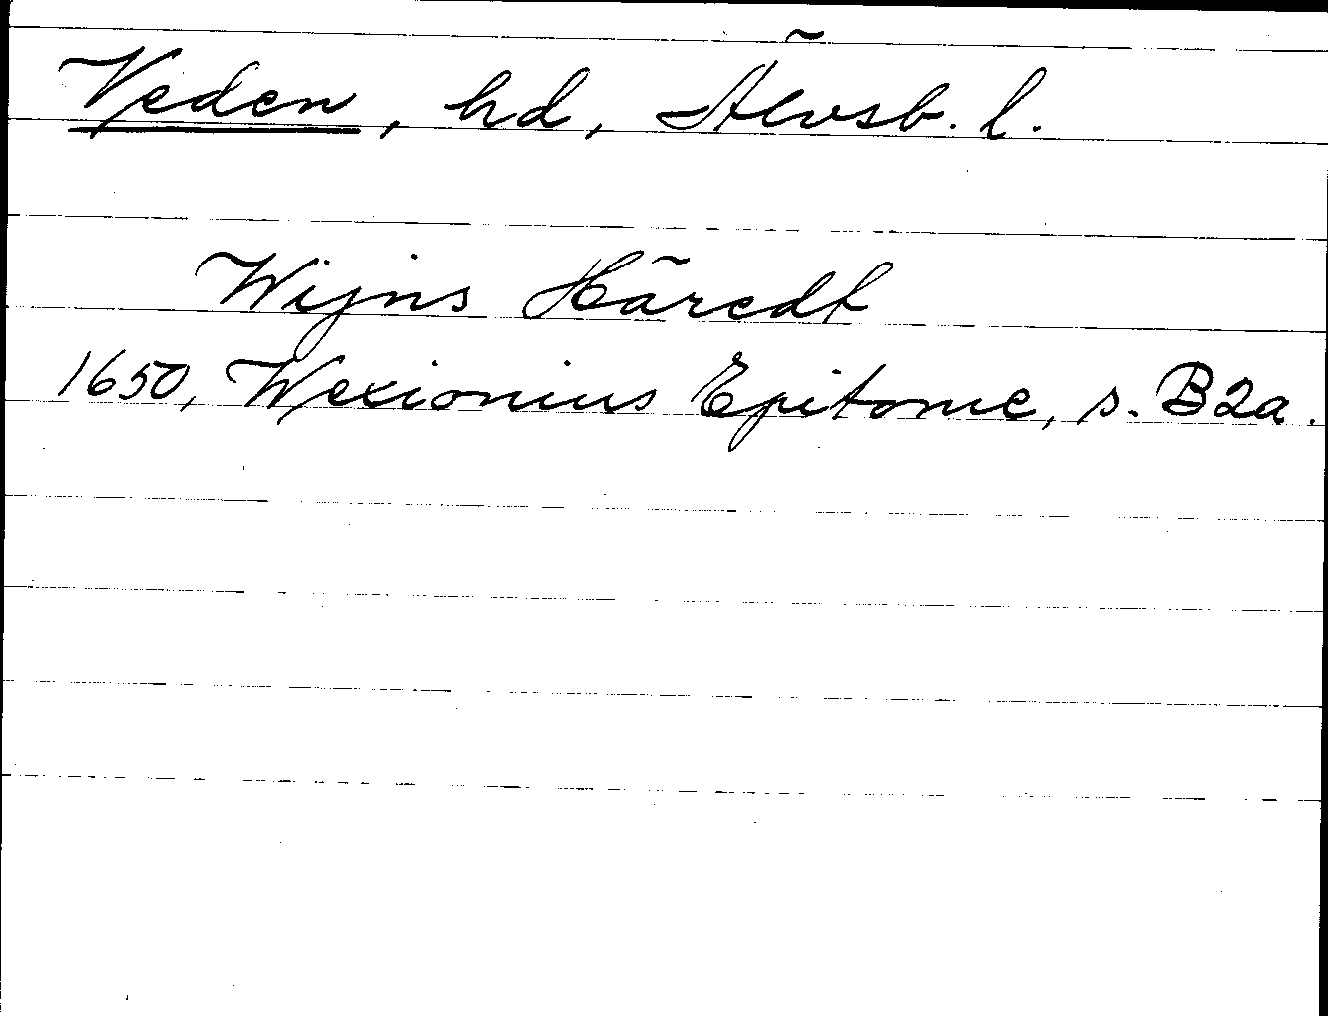 Veden, hd, Älvsb. l.
Wijns Häredt
1650, Wexionius Epitome, s. B2a.